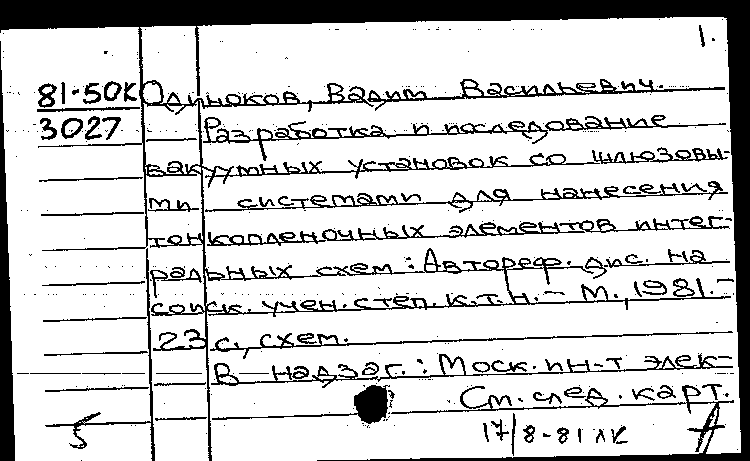 1.
81-50К Одиноков, Вадим Васильевич.
3027 Разработка и последование
вакуумных установок со шлюзовы-
ми системами для нанесения
тонкопленочных элементов интег-
ральных схем: Автореф. дис. на
соиск. учен. степ. к.т.н. - М., 1981. -
23 с., схем.
В надзаг.: Моск. ин-т элек-
См. след. карт.
5 17/8-81 ЛК